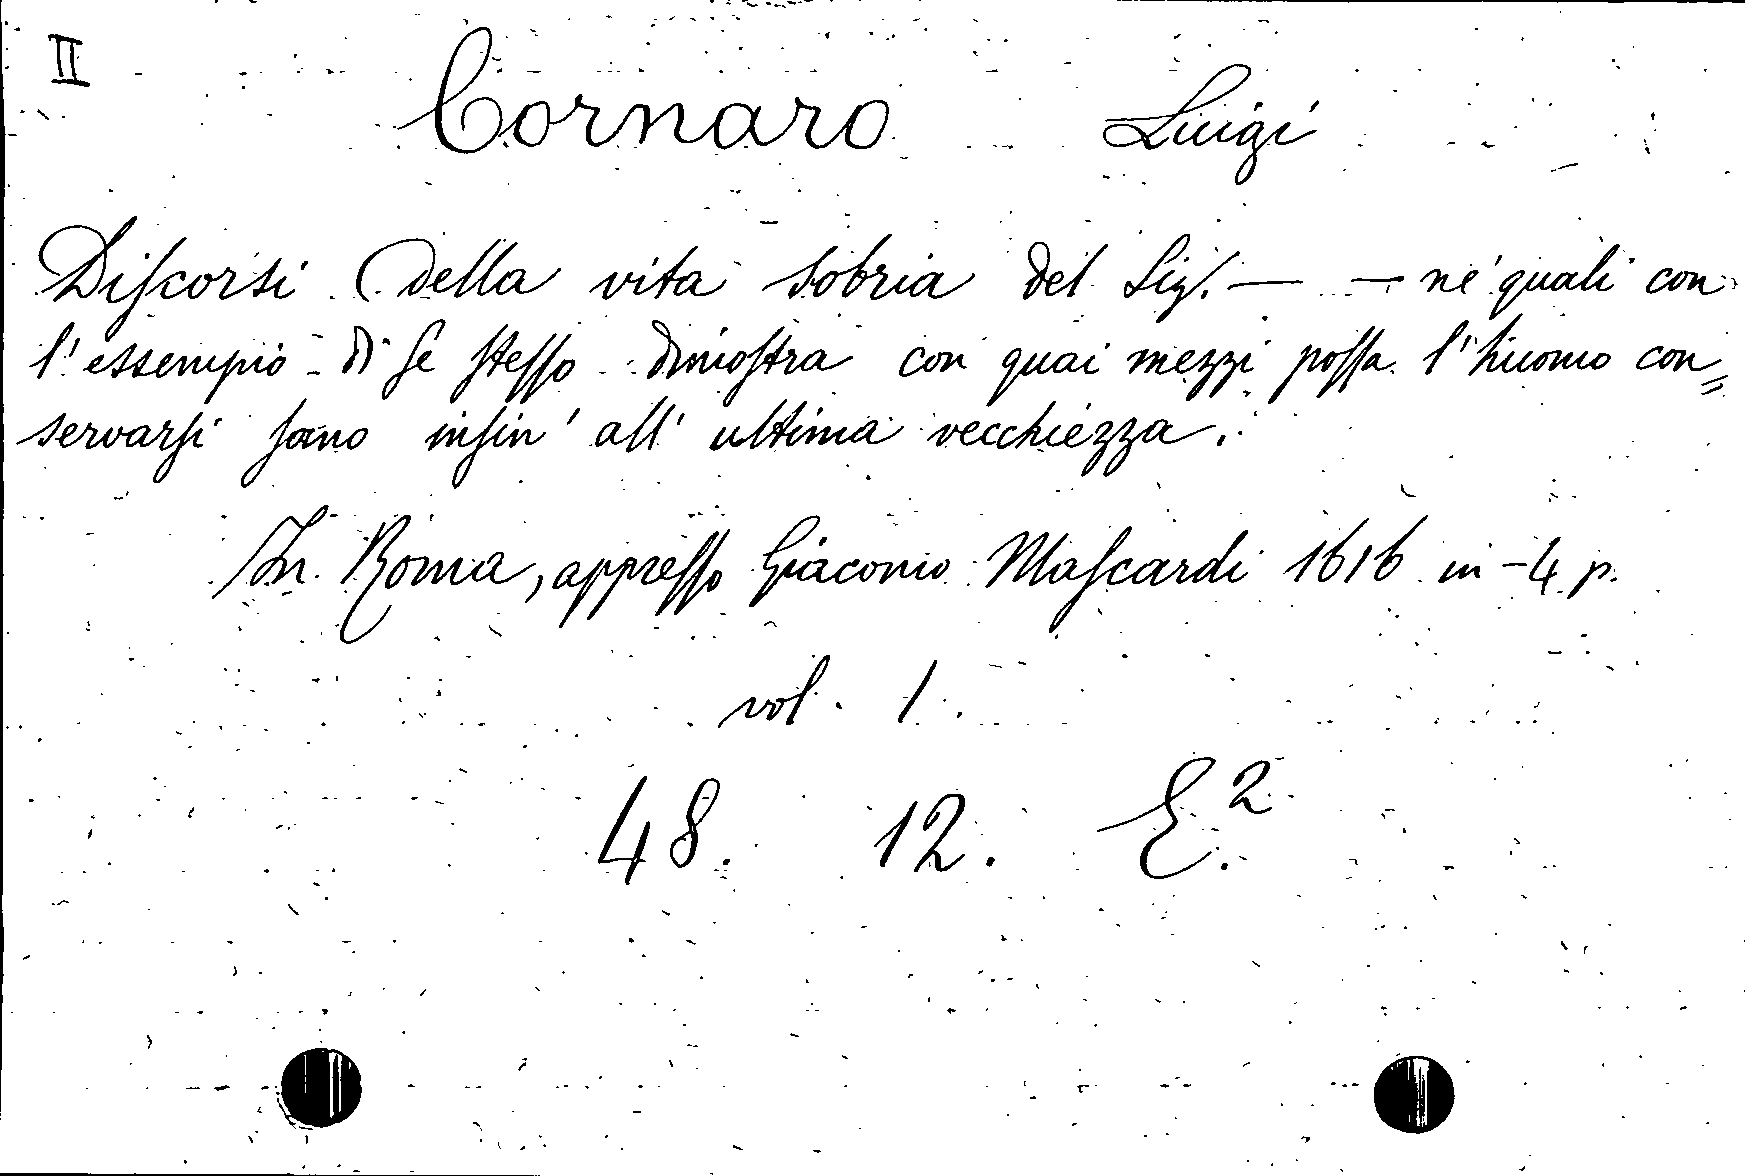 II
Cornaro Luigi
Diſcorsi della vita sobria del Sig. — — ne' quali con
l'essempio di ſe steſſo dimoſtra con quai mezzi poſſa l'huomo con=
servarſi ſano inſin' all' ultima vecchiezza.
In Roma, appreſſo Giacomo Maſcardi 1616 in-4 p.
vol. 1.
48. 12. E.²